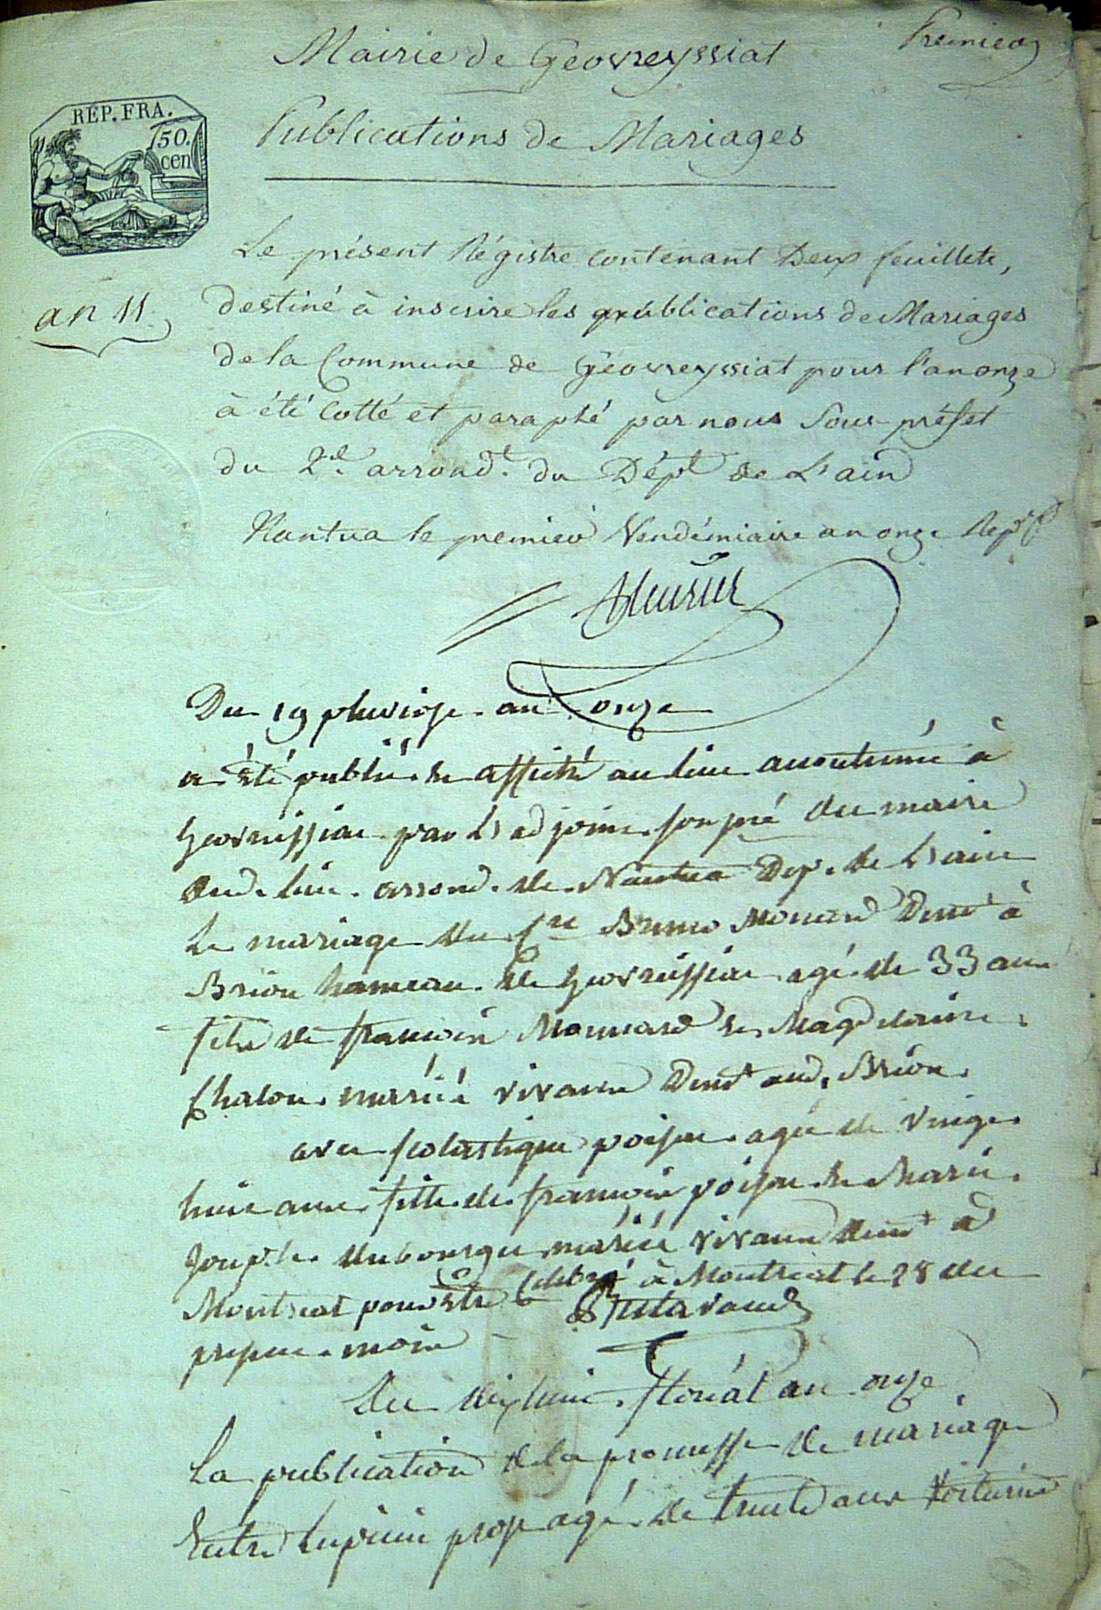 Mairie de Géovreyssiat
Premier
Publications de Mariages
REP. FRA.
50.
cen
Le présent Régistre contenant Deux feuillets,
an 11
destiné à inscrire les publications de Mariages
de la Commune de Géovreyssiat pour l'an onze
à été Cotté et paraphé par nous Sous-préfet
du 2e. arrondt. du Dépt de L'ain
Nantua le premier Vendémiaire an onze
Du 19 pluviose an onze
a été publié et affiché au lieu accoutumé à
par L'adjoint du maire
dud. lieu. arrond. de Nantua Dep. de L'ain
Le mariage du Bruno Monard Demt à
Brion hameau de âgé de 33 ans
fils de francois Monnard et Magdelaine
Chalon. mariés vivans Demt aud. Brion.
avec scolastique agée de vingt
huit ans fille de francois et Marie
mariés vivans demt à
Montreal pour etre à Montreal le 28 du
present mois
Du floréal an onze
La publication de la promesse de mariage
Entre agé de trente ans